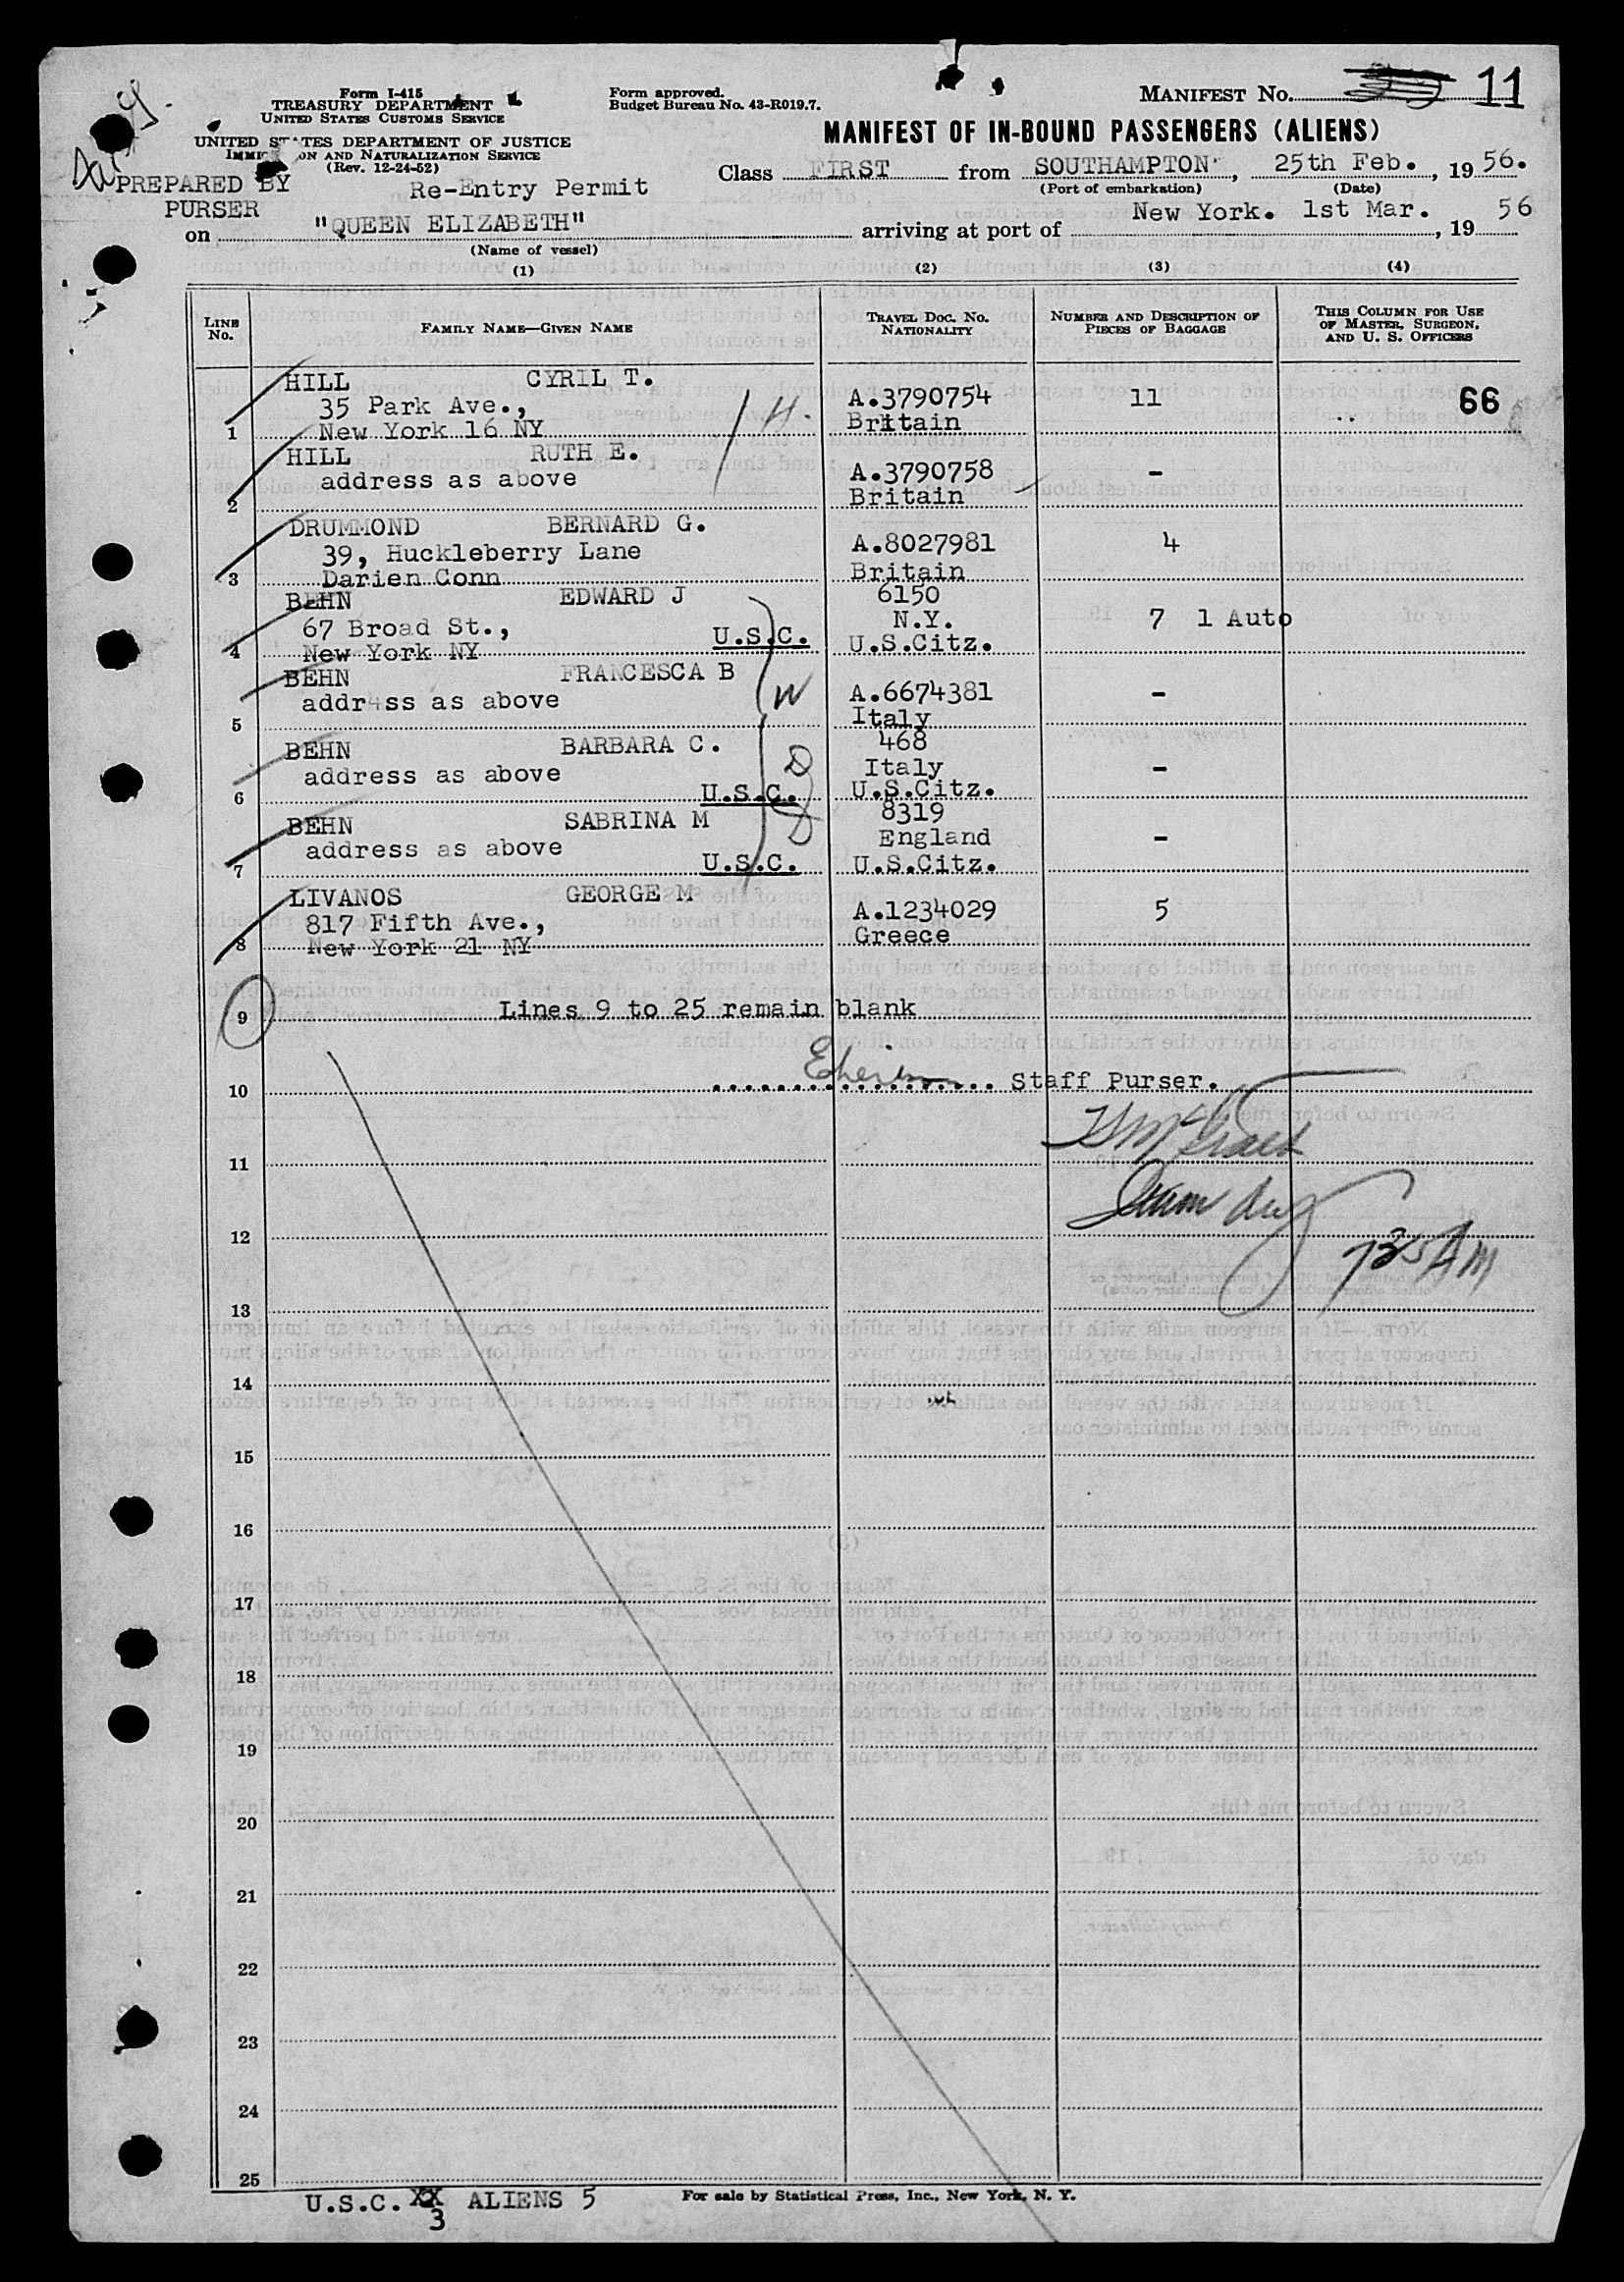 Form I-415
TREASURY DEPARTMENT
UNITED STATES CUSTOMS SERVICE
UNITED STATES DEPARTMENT OF JUSTICE
IMMIGRATION AND NATURALIZATION SERVICE
(Rev. 12-24-52)
Form approved.
Budget Bureau No. 43-R019.7.
MANIFEST No. 11
MANIFEST OF IN-BOUND PASSENGERS (ALIENS)
PREPARED BY
PURSER
Re-Entry Permit
Class FIRST from SOUTHAMPTON, 25th Feb., 1956.
(Port of embarkation) (Date)
on "QUEEN ELIZABETH" arriving at port of New York. 1st Mar., 19 56
(Name of vessel)
(1) (2) (3) (4)
LINE No. FAMILY NAME—GIVEN NAME TRAVEL DOC. NO. NATIONALITY NUMBER AND DESCRIPTION OF PIECES OF BAGGAGE THIS COLUMN FOR USE OF MASTER, SURGEON, AND U. S. OFFICERS
HILL CYRIL T.
35 Park Ave., A.3790754 11 66
1 New York 16 NY H. Britain
HILL RUTH E.
address as above A.3790758 -
2 Britain
DRUMMOND BERNARD G.
39, Huckleberry Lane A.8027981 4
3 Darien Conn Britain
BEHN EDWARD J 6150
67 Broad St., U.S.C. N.Y. 7 1 Auto
4 New York NY U.S.Citz.
BEHN FRANCESCA B
addr4ss as above W A.6674381 -
5 Italy
BEHN BARBARA C. 468
address as above D Italy -
6 U.S.C. U.S.Citz.
BEHN SABRINA M D 8319
address as above England -
7 U.S.C. U.S.Citz.
LIVANOS GEORGE M
817 Fifth Ave., A.1234029 5
8 New York 21 NY Greece
9 Lines 9 to 25 remain blank
10 Staff Purser.
11
12
725 AM
13
14
15
16
17
18
19
20
21
22
23
24
25
U.S.C. XX ALIENS 5
3
For sale by Statistical Press, Inc., New York, N. Y.